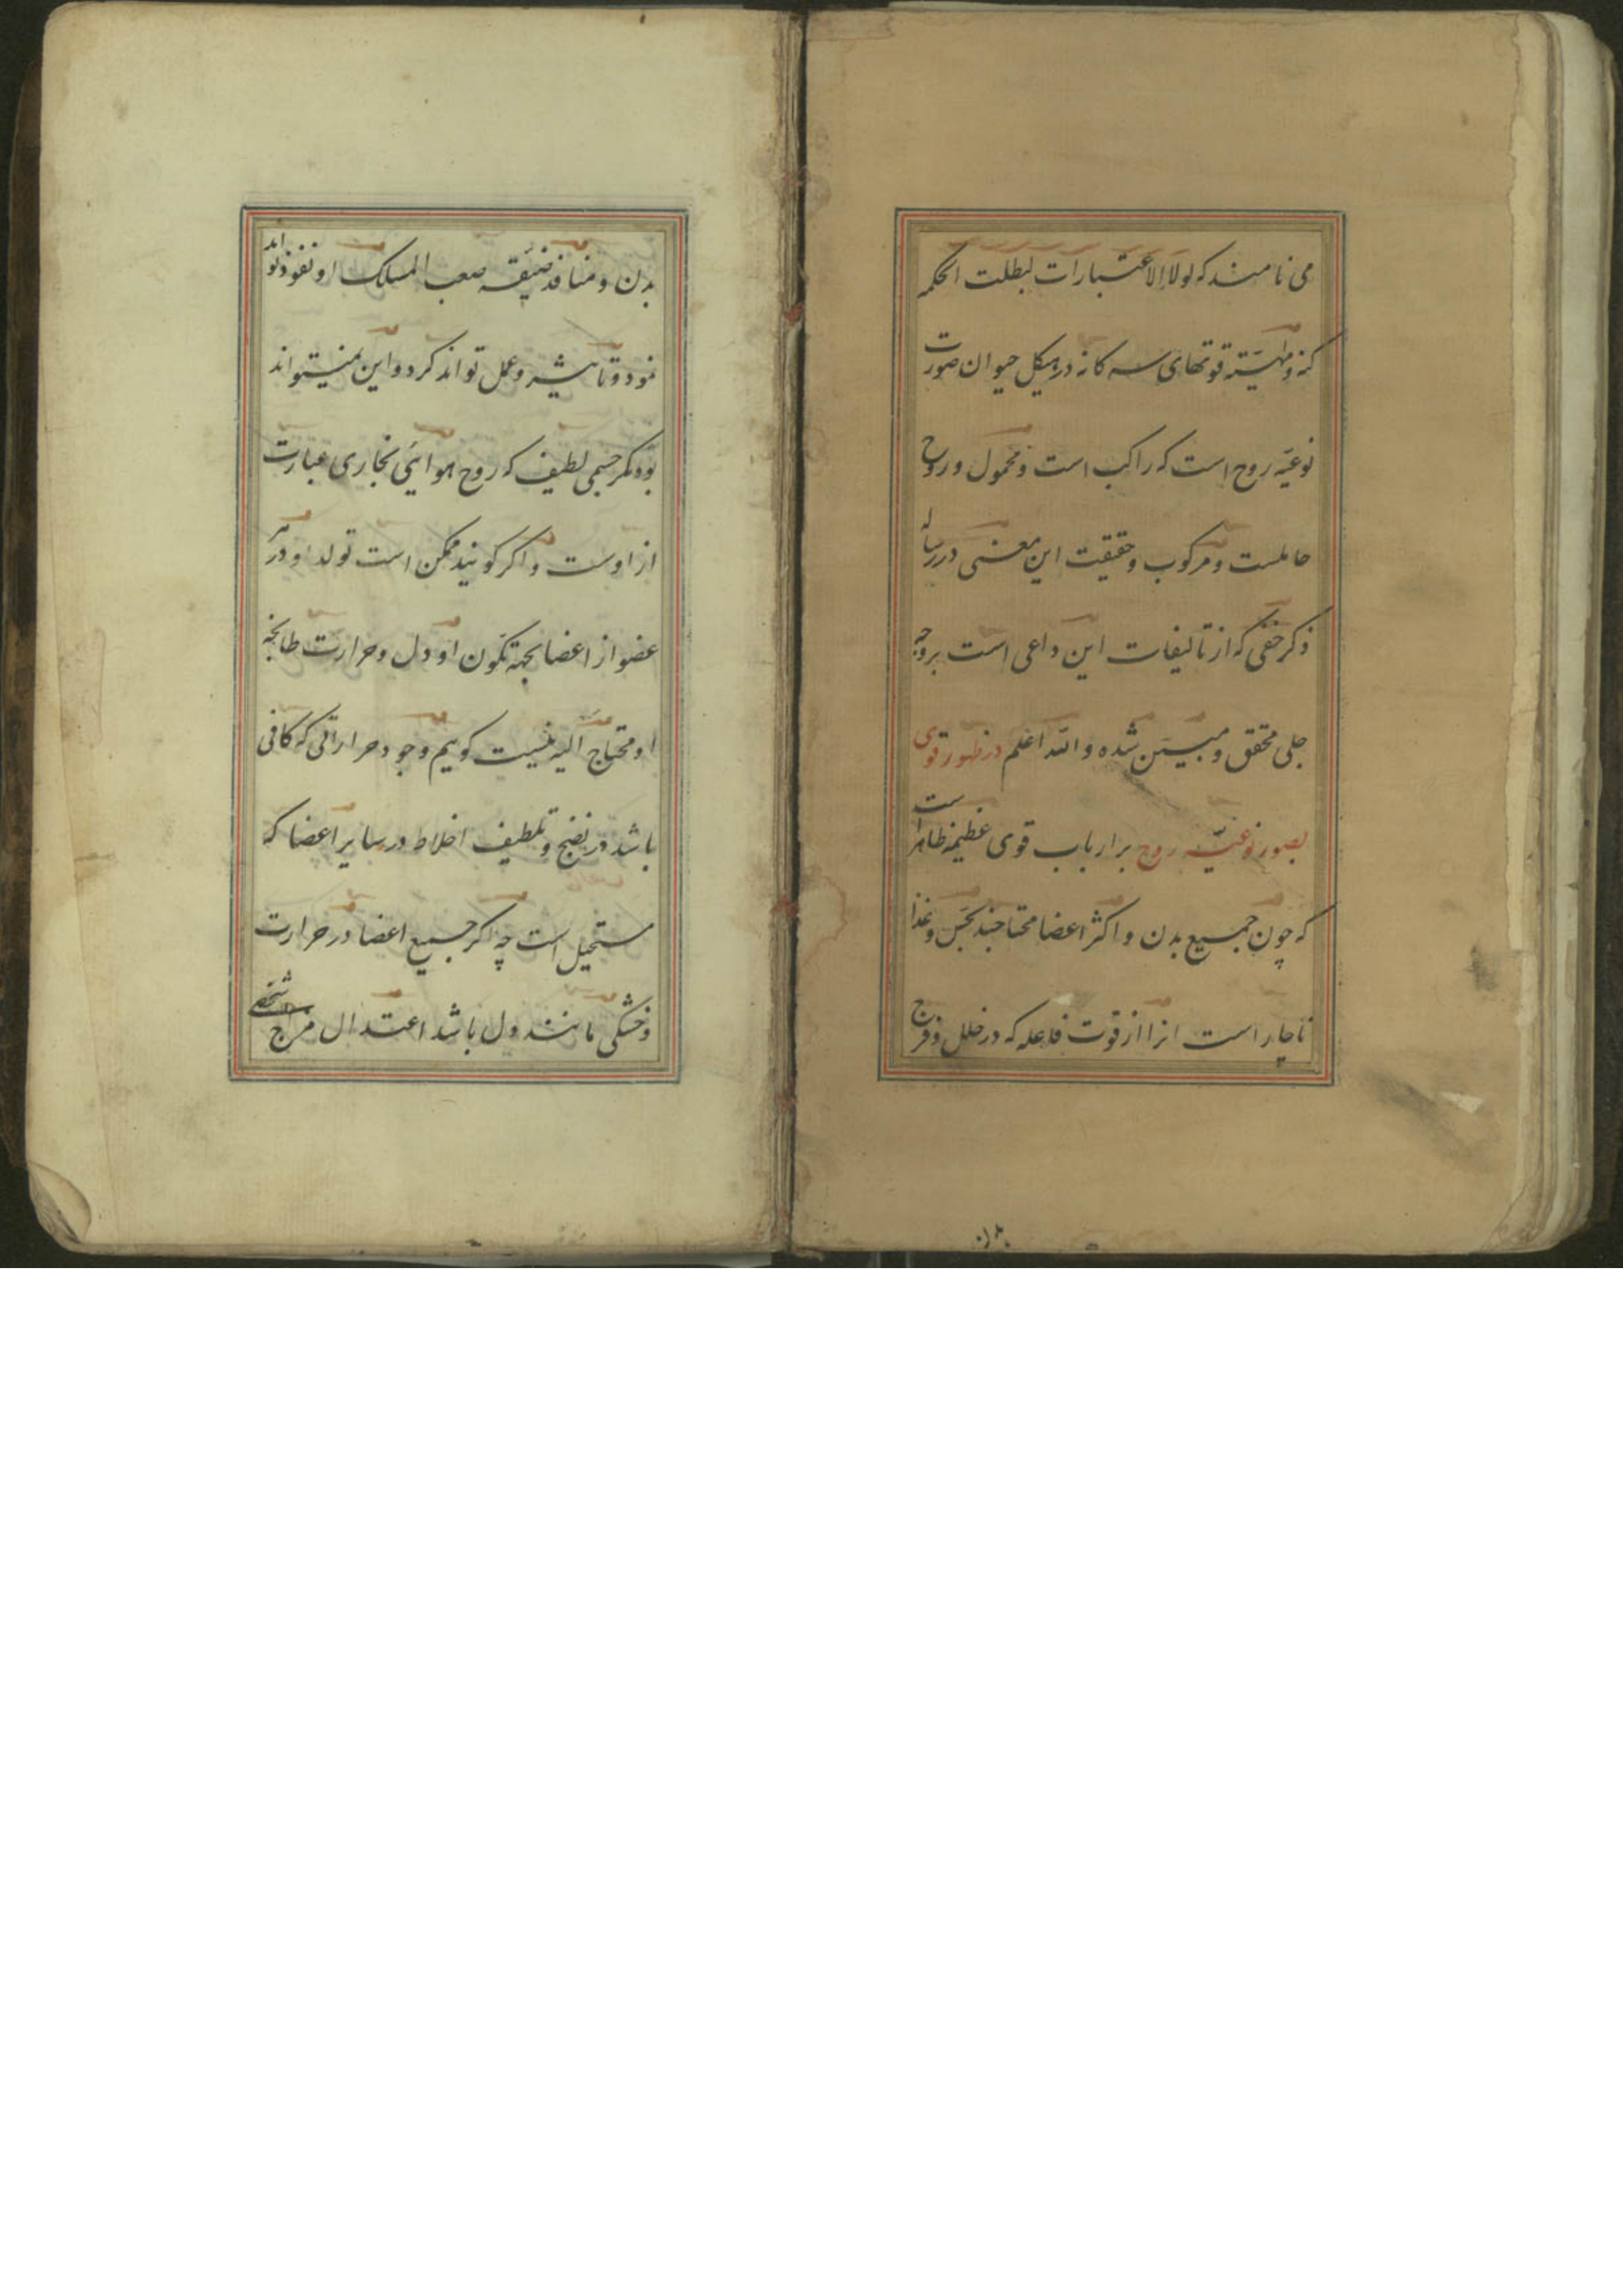 می نامند که لولا الاعتبارات لبطلت الحکمه
کنه و ماهیّته قوتهای سه کانه در هیکل حیوان صورت
نوعیّه روح است که راکب است و محمول و روح
حاملست و مرکوب و حقیقت این معنی در رساله
ذکر خفی که از تالیفات این داعی است بر وجه
جلی محقق و مبیّن شده و الله اعلم در ظهور قوی
بصور نوعیّه روح بر ارباب قوی عظیمه ظاهر است
که چون جمیع بدن و اکثر اعضا محتاجند بحس و غذا
ناچار است انرا از قوت فاعله که در خلل و فرج
بدن و منافذ ضیّقه صعب المسلک او نفوذ تواند
نمود و تاثیر و عمل تواند کرد و این نمیتواند
بود مکر جسمی لطیف که روح هوایی بخاری عبارت
از اوست و اکر کویند ممکن است تولد او در هر
عضو از اعضا بجهة تکون او دل و حرارت طابخه
او محتاج الیه نیست کویم وجود حرارتی که کافی
باشد در نضج و تلطیف اخلاط در سایر اعضا که
مستحیل است چه اکر جمیع اعضا در حرارت
و خشکی مانند دل باشد اعتدال مزاج شخصی